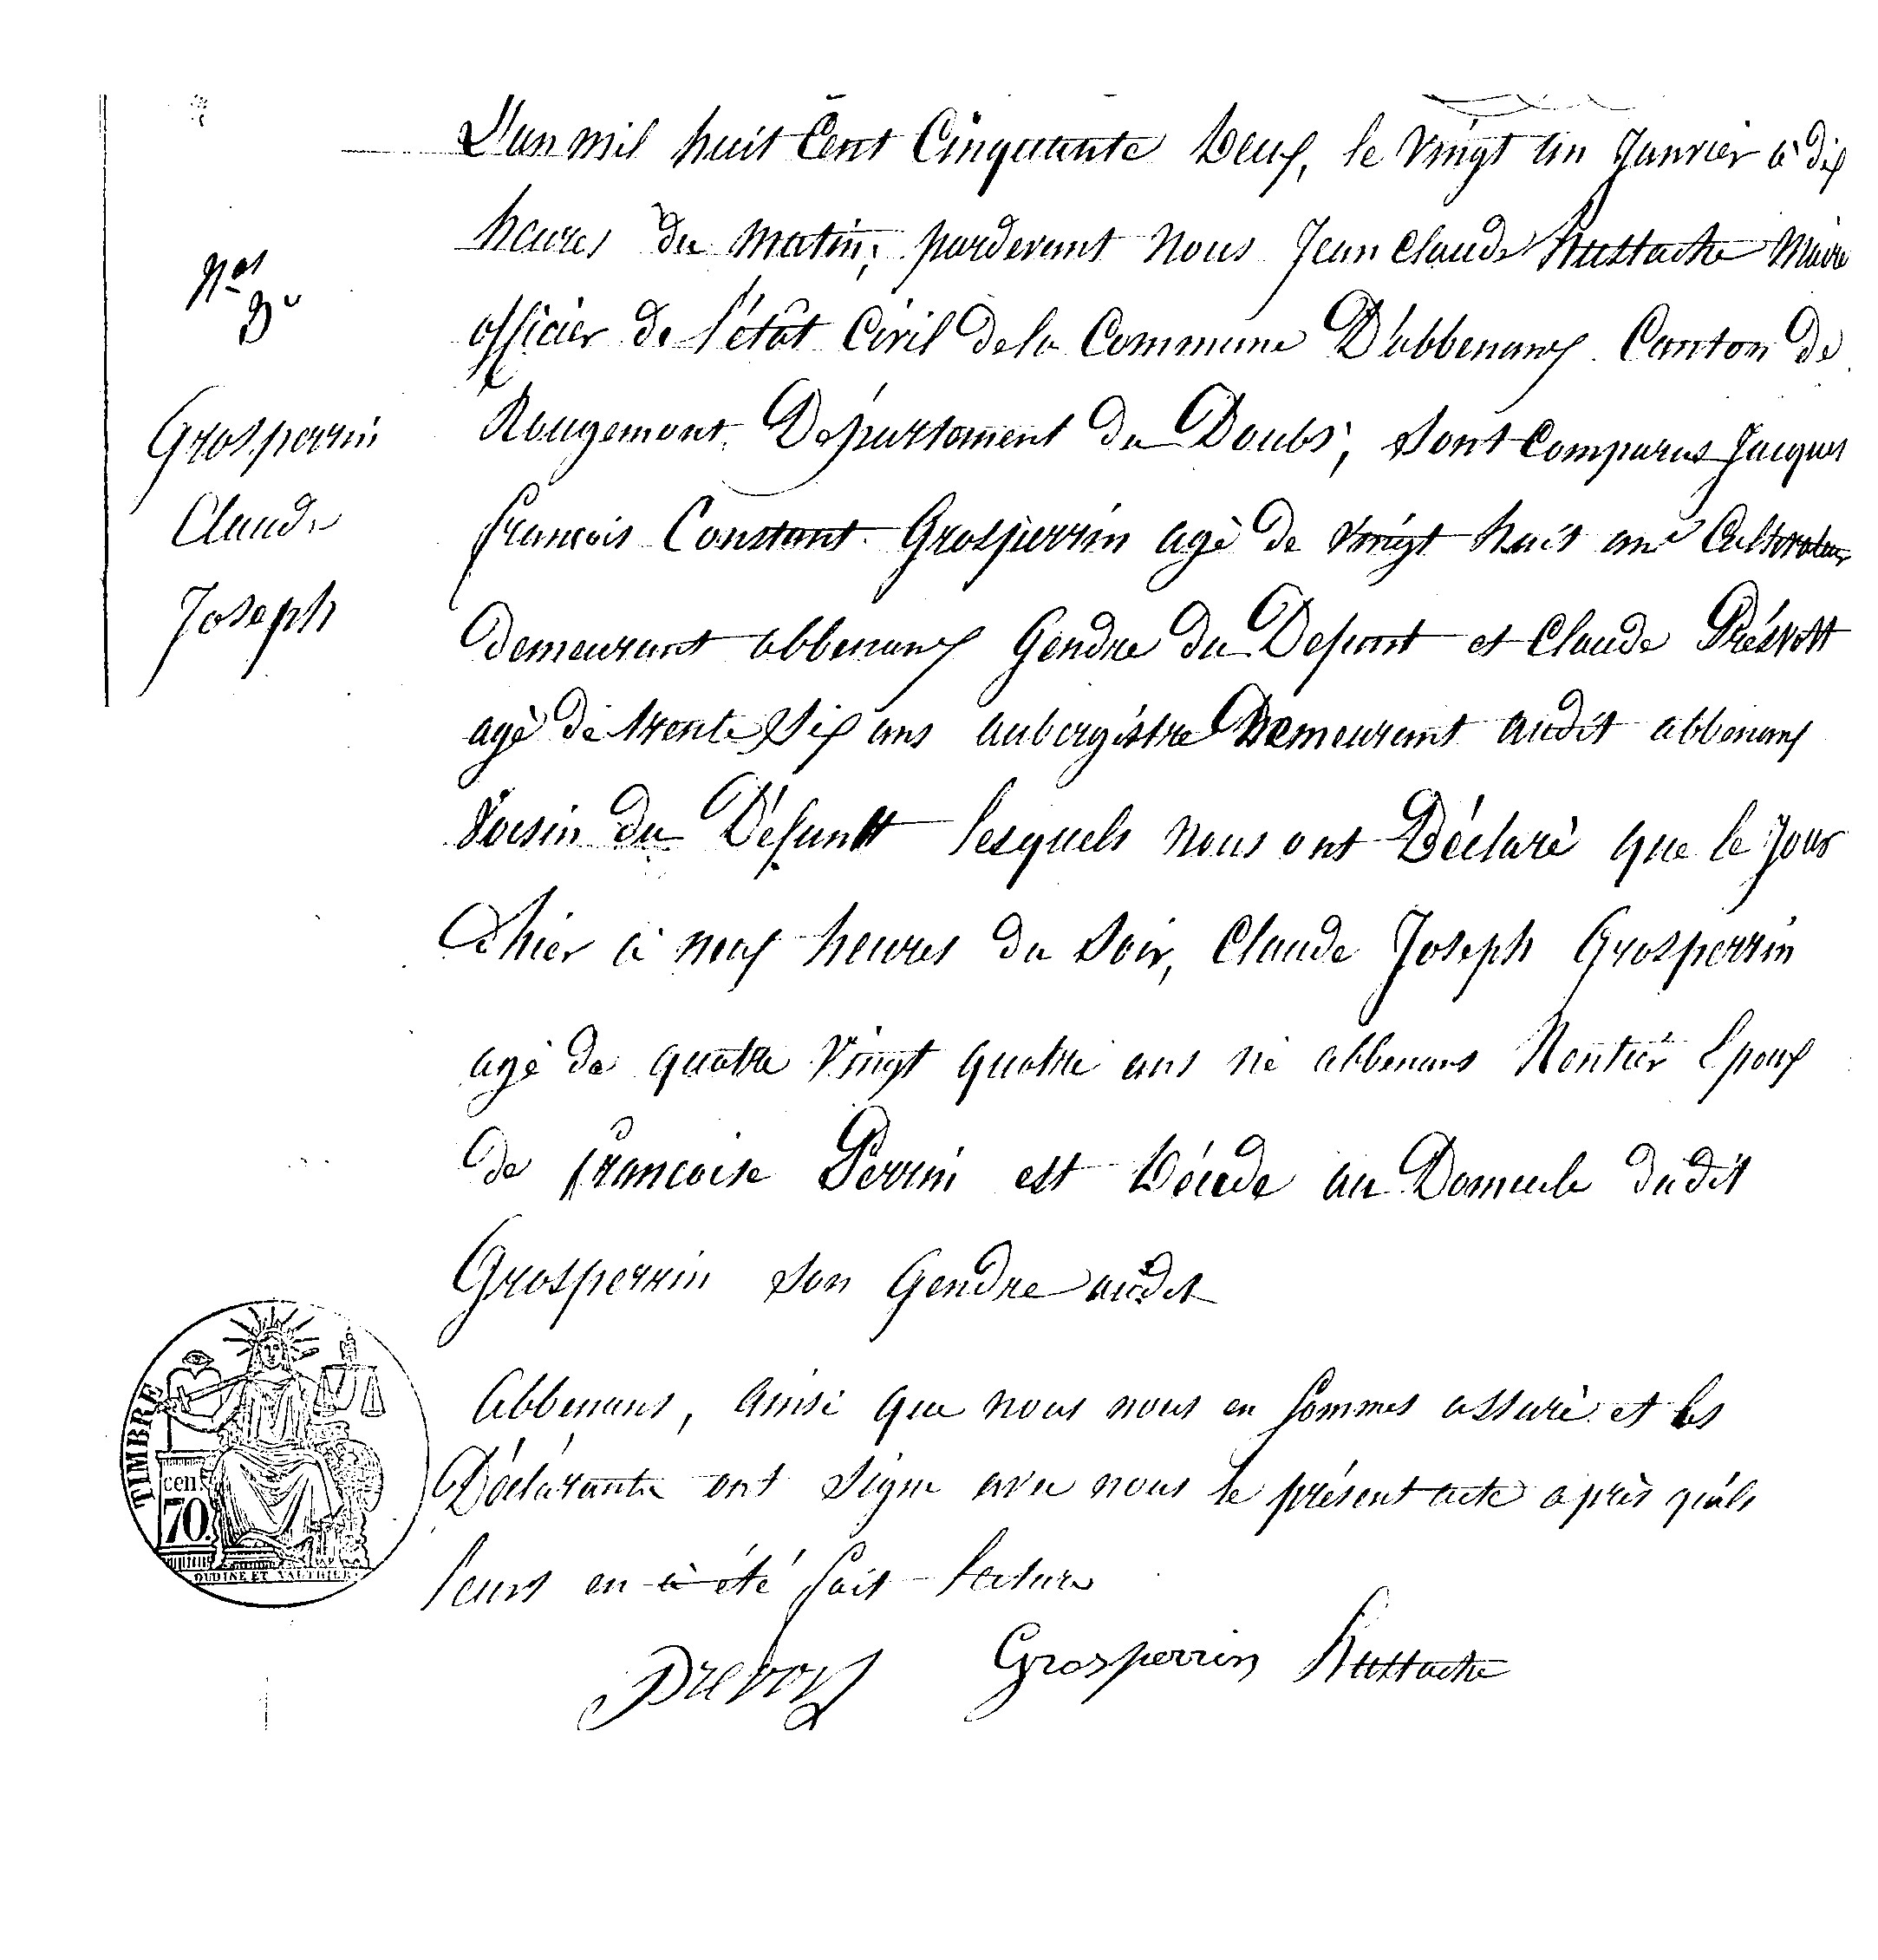 L'an mil huit Cent Cinquante Deux, le vingt un Janvier à dix
heures du matin, pardevant nous Jean Claude Maire
officier de l'étât Civil de la Commune D'abbenans Canton de
Rougemont Département du Doubs, Sont Comparus Jacques
françois Constant Grosperrin agé de vingt huit ans Cultivateur
demeurant abbenans Gendre du Defunt et Claude Prévost
agé de trente Six ans aubergiste Demeurant audit abbenans
Voisin du Défunt lesquels nous ont Déclaré que le Jour
d'hier à neuf heures du Soir, Claude Joseph Grosperrin
agé de quatre vingt quatre ans né abbenans Rentier Epoux
de françoise Perrin est Décede au Domicile dudit
Grosperrin son Gendre audit
Abbenans, ainsi que nous nous en sommes assuré et les
Déclarants ont signe avec nous le présent acte après qu'ils
leurs en à été fait lecture
Prevot Grosperrin
Grosperrin
Claude
Joseph
TIMBRE
cen.
70.
OUDINE ET VAUTHIER.